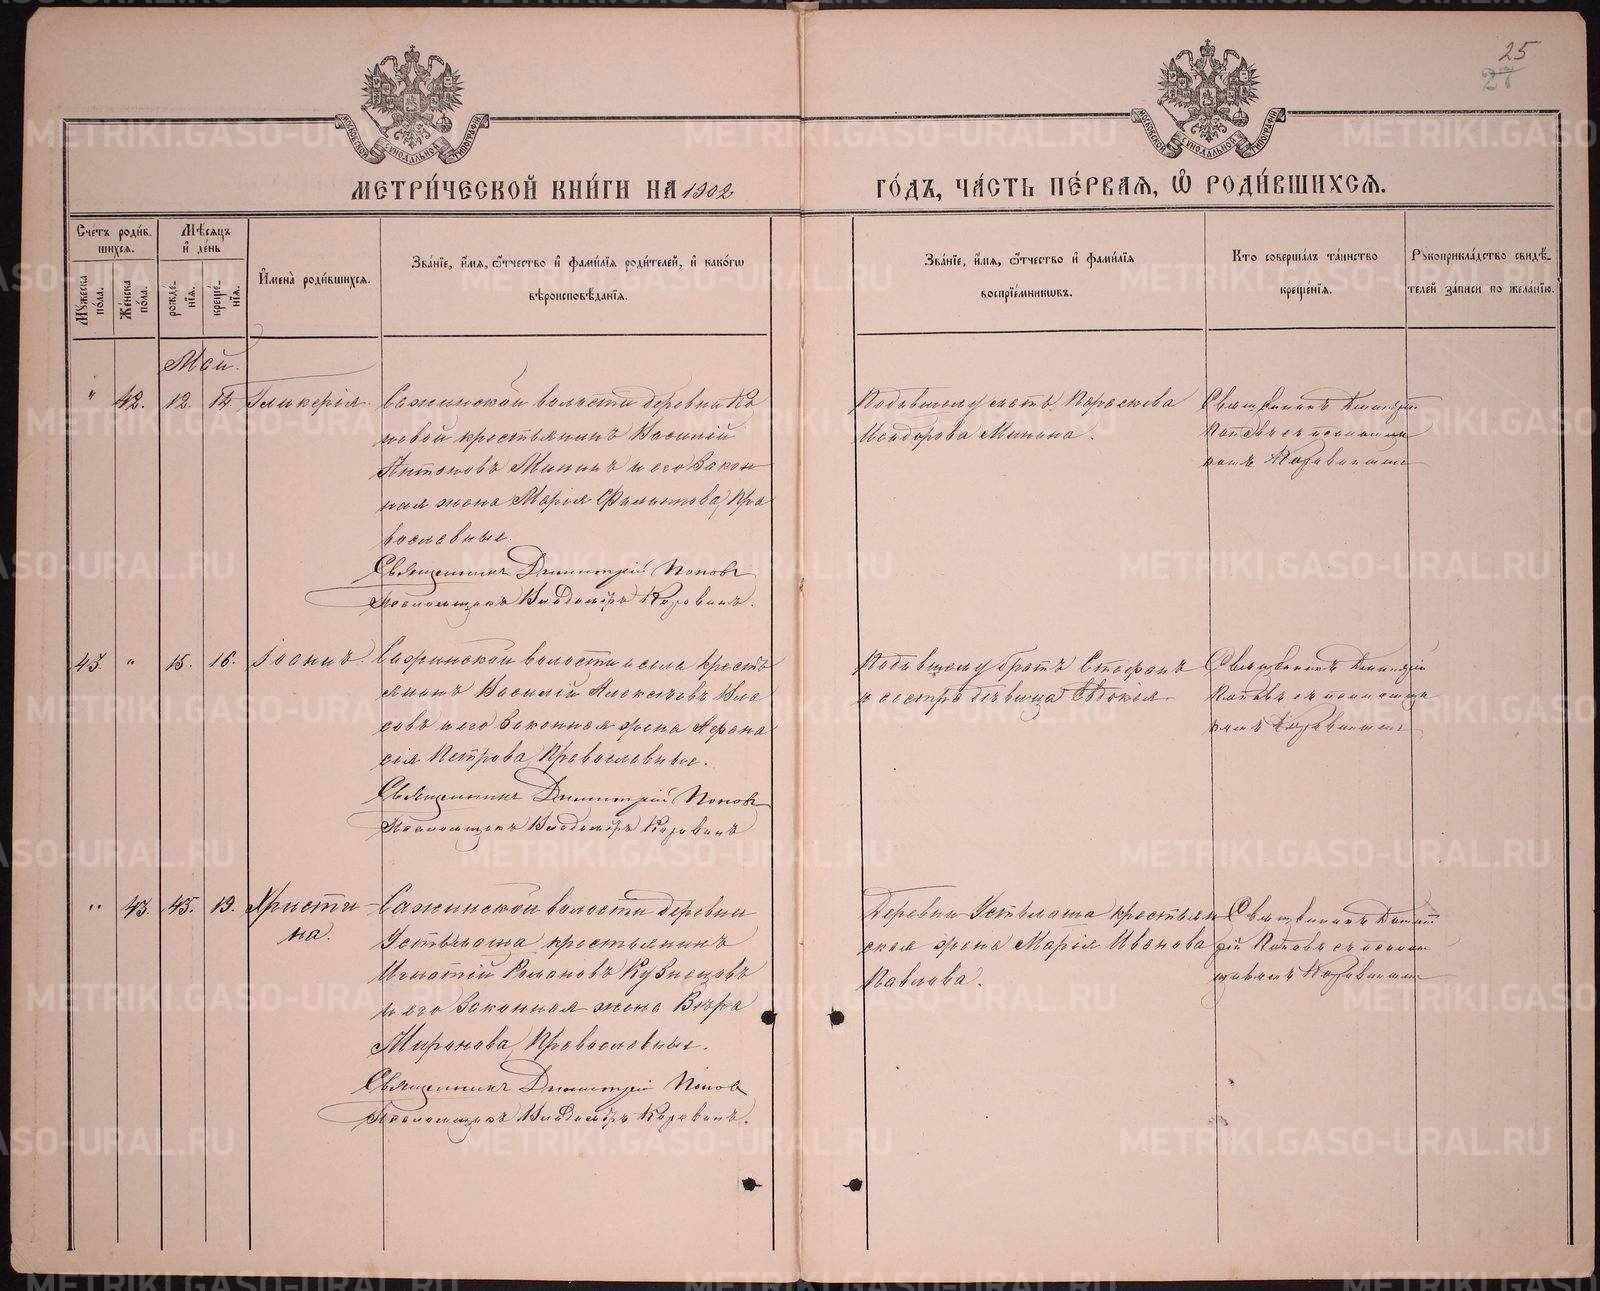 25
27
МОСКОВСКОЙ СѴНОДАЛЬНОЙ ТИПОГРАФІИ
МОСКОВСКОЙ СѴНОДАЛЬНОЙ ТИПОГРАФІИ
МЕТРИ́ЧЕСКОЙ КНИ́ГИ НА 1902
ГО́ДЪ, ЧА́СТЬ ПЕ́РВАѦ, Ѡ҆ РОДИ́ВШИХСѦ.
Сче́тъ роди́в-
шихся.
Мꙋжеска по́ла.
Же́нска по́ла.
Мѣ́сяцъ
и҆ де́нь
рожде́-нїѧ.
креще́-нїѧ.
И҆мена̀ роди́вшихсѧ.
Зва́нїе, и҆́мѧ, ѻ҆́тчество и҆ фами́лїѧ роди́телей, и҆ како́гѡ
вѣроисповѣ́данїѧ.
Зва́нїе, и҆́мѧ, ѻ҆́тчество и҆ фами́лїѧ
воспрїе́мникѡвъ.
Кто соверша́лъ та́инство
креще́нїѧ.
Рꙋкоприкла́дство свидѣ́-
телей за́писи по жела́нїю.
Май.
" 42. 12. 14. Гликерія.
Сажинской волости деревни Ко
новой крестьянинъ Василій
Антоновъ Мининъ и его закон
ная жена Марія Филиппова, Пра
вославные.
Священникъ Димитрій Поповъ
Псаломщикъ Владиміръ Коровинъ.
Параскева
Исидорова Минина.
Священникъ Димитрій
Поповъ съ псаломщи
комъ Коровинымъ
43. " 15. 16. Іоаннъ.
Сажинской волости и села кресть
янинъ Василій Алексѣевъ Вла
совъ и его законная жена Афана
сія Петрова, Православные.
Священникъ Димитрій Поповъ
Псаломщикъ Владиміръ Коровинъ
братъ Стефанъ
и сестра дѣвица Евдокія
Священникъ Димитрій
Поповъ съ псаломщи
комъ Коровинымъ
" 43. 15. 19. Христи
на.
Сажинской волости деревни
Устьмаша крестьянинъ
Игнатій Романовъ Кузнецовъ
и его законная жена Вѣра
Миронова, Православные.
Священникъ Димитрій Попов
Псаломщикъ Владиміръ Коровинъ.
Деревни Устьмаша крестьян
ская жена Марія Иванова
Павлова.
Священникъ Димит
рій Поповъ съ псалом
щикомъ Коровинымъ
METRIKI.GASO-URAL.RU